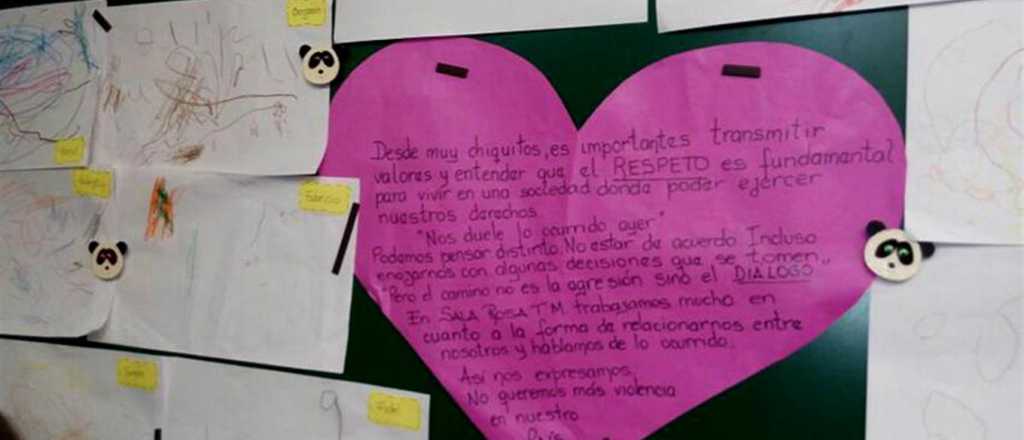 Desde muy chiquitos, es importantes transmitir
valores y entender que el RESPETO es fundamental
para vivir en una sociedad donde poder ejercer
nuestros derechos.
"Nos duele lo ocurrido ayer"
Podemos pensar distinto. No estar de acuerdo Incluso
enojarnos con algunas decisiones que se tomen,,
"Pero el camino no es la agresión sino el DIALOGO
En SALA ROSA T.M. trabajamos mucho en
cuanto a la forma de relacionarnos entre
nosotros y hablamos de lo ocurrido.
Así nos expresamos.
No queremos más violencia
en nuestro
País